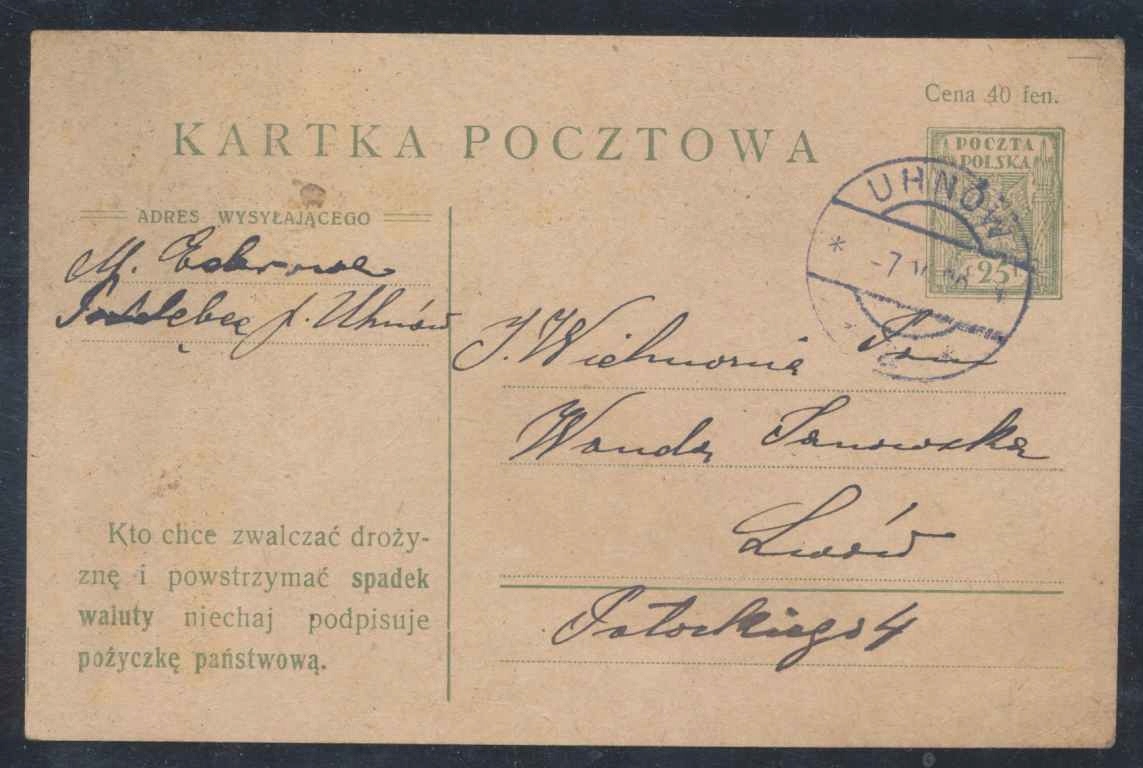 Cena 40 fen.
KARTKA POCZTOWA
POCZTA
POLSKA
25
UHNÓW
* -7
ADRES WYSYŁAJĄCEGO
M.
p. Uhnów
J. Wielmożna Pani
Wanda Janowska
Lwów
Potockiego 4
Kto chce zwalczać droży-
znę i powstrzymać spadek
waluty niechaj podpisuje
pożyczkę państwową.